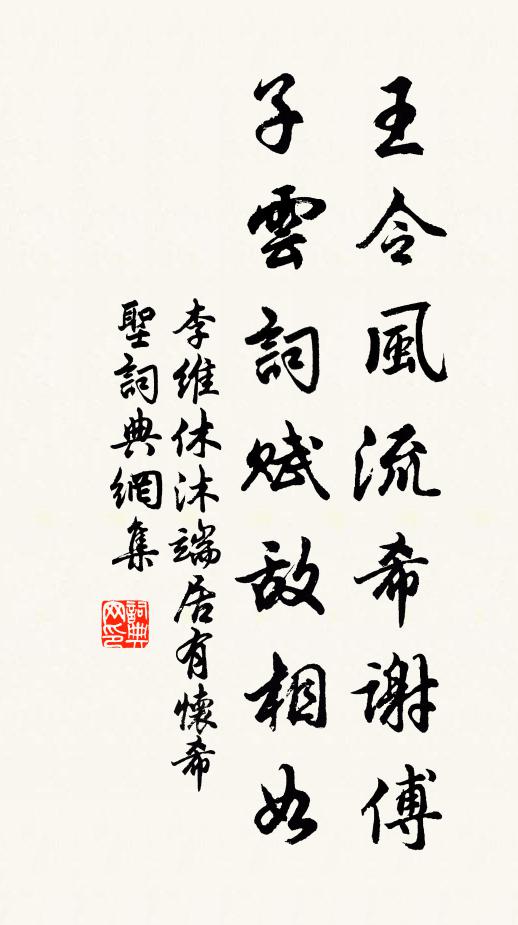 王令風流希謝傅
子雲詞賦敵相如
李維休沐端居有懷希
聖詞典網集
詞典网印